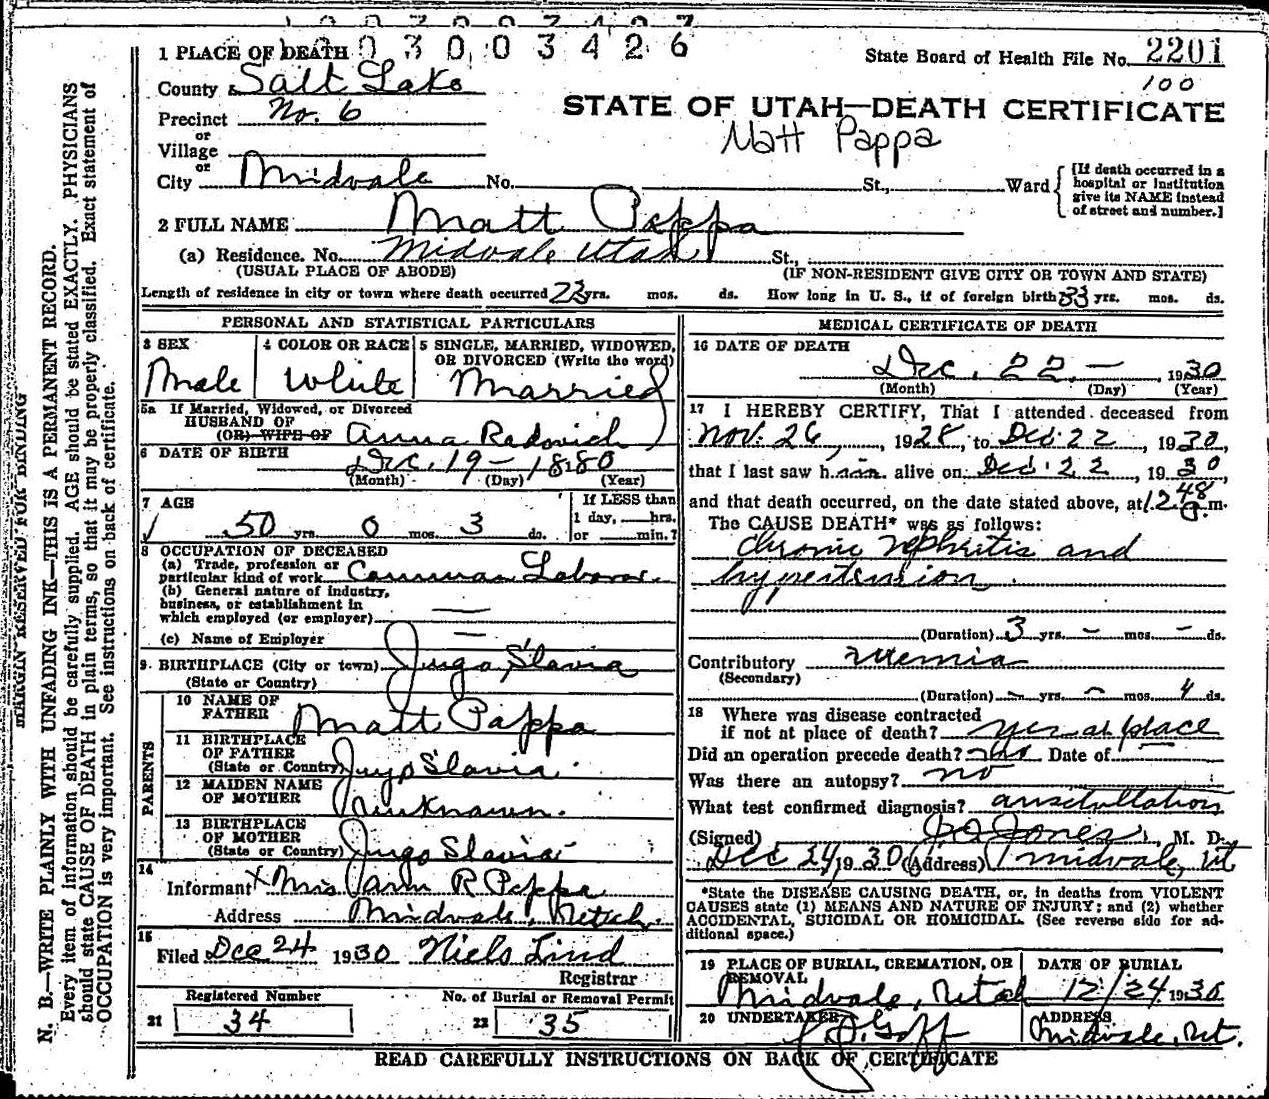 1 PLACE OF DEATH 0 3 0 0 3 4 2 6
State Board of Health File No. 2201
County Salt Lake 100
Precinct No. 6 STATE OF UTAH—DEATH CERTIFICATE
or Matt Pappa
Village
or
City Midvale No. St., Ward [If death occurred in a hospital or institution give its NAME instead of street and number.]
2 FULL NAME Matt Pappa
(a) Residence. No. Midvale Utah St.,
(USUAL PLACE OF ABODE) (IF NON-RESIDENT GIVE CITY OR TOWN AND STATE)
Length of residence in city or town where death occurred 23 yrs. mos. ds. How long in U. S., if of foreign birth 33 yrs. mos. ds.
PERSONAL AND STATISTICAL PARTICULARS
3 SEX 4 COLOR OR RACE 5 SINGLE, MARRIED, WIDOWED,
OR DIVORCED (Write the word)
Male White Married
5a If Married, Widowed, or Divorced
HUSBAND OF
(OR) WIFE OF Anna Radovich
6 DATE OF BIRTH Dec. 19 - 1880
(Month) (Day) (Year)
7 AGE If LESS than
50 yrs. 0 mos. 3 ds. 1 day, hrs.
or min.?
8 OCCUPATION OF DECEASED
(a) Trade, profession or
particular kind of work Common Laborer
(b) General nature of industry,
business, or establishment in
which employed (or employer) —
(c) Name of Employer —
9. BIRTHPLACE (City or town) Jugo Slavia
(State or Country)
PARENTS
10 NAME OF
FATHER Matt Pappa
11 BIRTHPLACE
OF FATHER
(State or Country) Jugo Slavia
12 MAIDEN NAME
OF MOTHER Unknown.
13 BIRTHPLACE
OF MOTHER
(State or Country) Jugo Slavia
14
Informant x Mrs R Pappa
Address Midvale, Utah.
15
Filed Dec 24 1930 Niels Lind
Registrar
Registered Number No. of Burial or Removal Permit
21 34 22 35
MEDICAL CERTIFICATE OF DEATH
16 DATE OF DEATH
Dec. 22. - , 1930
(Month) (Day) (Year)
17 I HEREBY CERTIFY, That I attended deceased from
Nov. 26, 1928, to Dec. 22, 1930,
that I last saw him alive on Dec. 22, 1930,
and that death occurred, on the date stated above, at 12 48 m.
The CAUSE DEATH* was as follows:
Chronic Nephritis and
hypertension.
(Duration) 3 yrs. - mos. - ds.
Contributory Uremia
(Secondary)
(Duration) - yrs. - mos. 4 ds.
18 Where was disease contracted
if not at place of death? yes at place
Did an operation precede death? no Date of —
Was there an autopsy? no
What test confirmed diagnosis? auscultation
(Signed) Jones, M. D.
Dec 24, 1930 (Address) Midvale, Ut
*State the DISEASE CAUSING DEATH, or, in deaths from VIOLENT
CAUSES state (1) MEANS AND NATURE OF INJURY; and (2) whether
ACCIDENTAL, SUICIDAL OR HOMICIDAL. (See reverse side for ad-
ditional space.)
19 PLACE OF BURIAL, CREMATION, OR
REMOVAL DATE OF BURIAL
Midvale, Utah 12/24 1930
20 UNDERTAKER ADDRESS
Goff Midvale, Ut.
READ CAREFULLY INSTRUCTIONS ON BACK OF CERTIFICATE
MARGIN RESERVED FOR BINDING
N. B.—WRITE PLAINLY WITH UNFADING INK—THIS IS A PERMANENT RECORD.
Every item of information should be carefully supplied. AGE should be stated EXACTLY. PHYSICIANS
should state CAUSE OF DEATH in plain terms, so that it may be properly classified. Exact statement of
OCCUPATION is very important. See instructions on back of certificate.